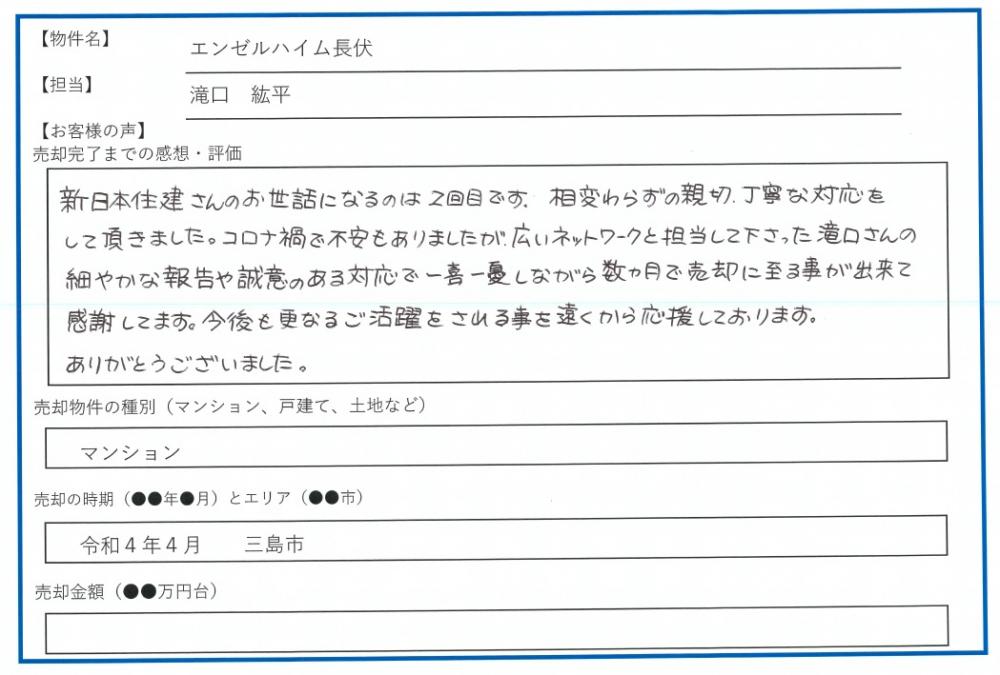 【物件名】 エンゼルハイム長伏
【担当】 滝口　紘平
【お客様の声】
売却完了までの感想・評価
新日本住建さんのお世話になるのは2回目です。相変わらずの親切、丁寧な対応を
して頂きました。コロナ禍で不安もありましたが、広いネットワークと担当して下さった滝口さんの
細やかな報告や誠意のある対応で一喜一憂しながら数ヵ月で売却に至る事が出来て
感謝してます。今後も更なるご活躍をされる事を遠くから応援しております。
ありがとうございました。
売却物件の種別（マンション、戸建て、土地など）
マンション
売却の時期（●●年●月）とエリア（●●市）
令和４年４月　　三島市
売却金額（●●万円台）